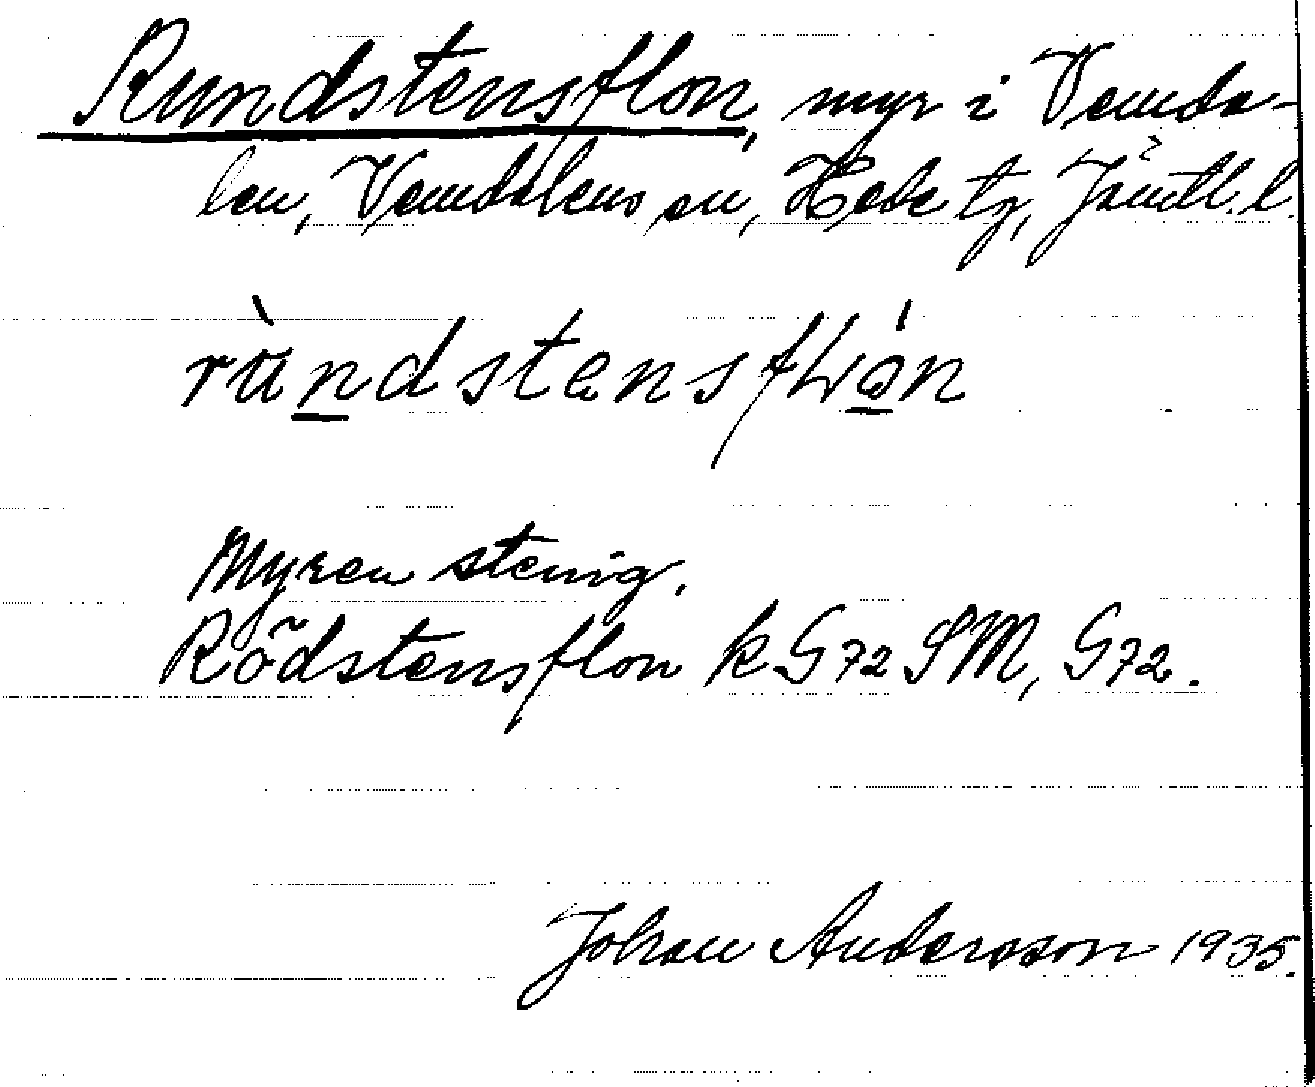 Rundstensflon, myr i Vemda-
len, Vemdalens sn, Hede tg, Jämtl. l.
rùn̲dstensfLó̲n
Myren stenig.
Rödstensflon k G72 SM, G72.
Johan Andersson 1935.